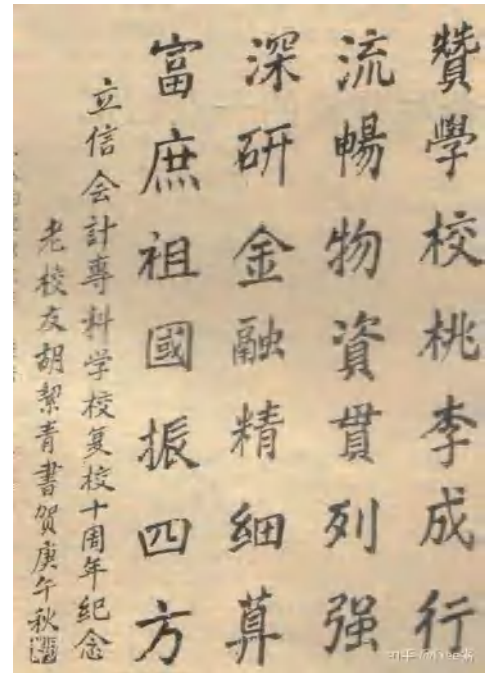 贊學校桃李成行
流暢物資貫列强
深研金融精細算
富庶祖國振四方
立信会計專科学校复校十周年紀念
老校友胡絜青書賀庚午秋